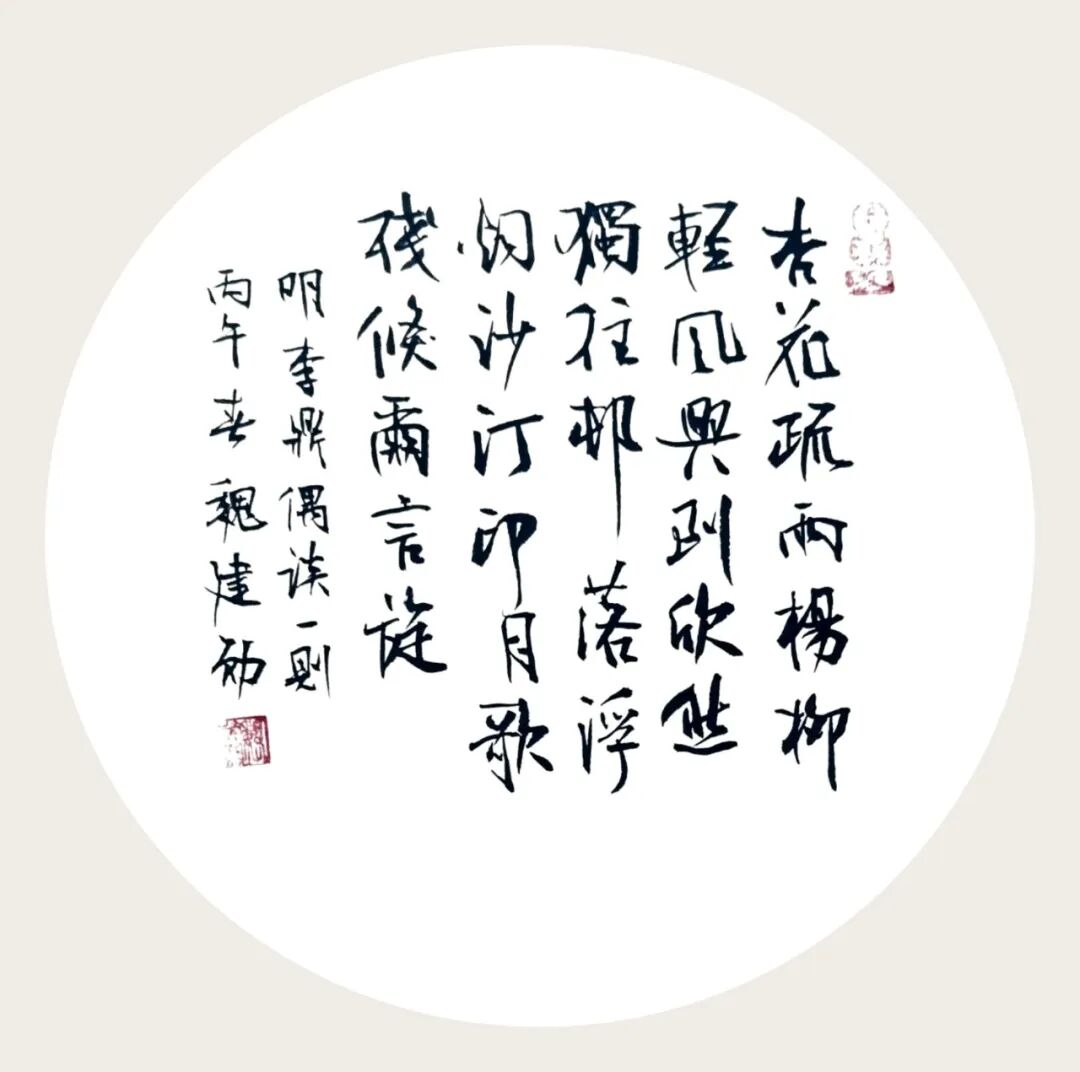 杏花疏雨楊柳
輕風興到欣然
獨往邨落浮
烟沙汀印月歌
殘倏爾言旋
明李鼎偶談一則
丙午春魏建